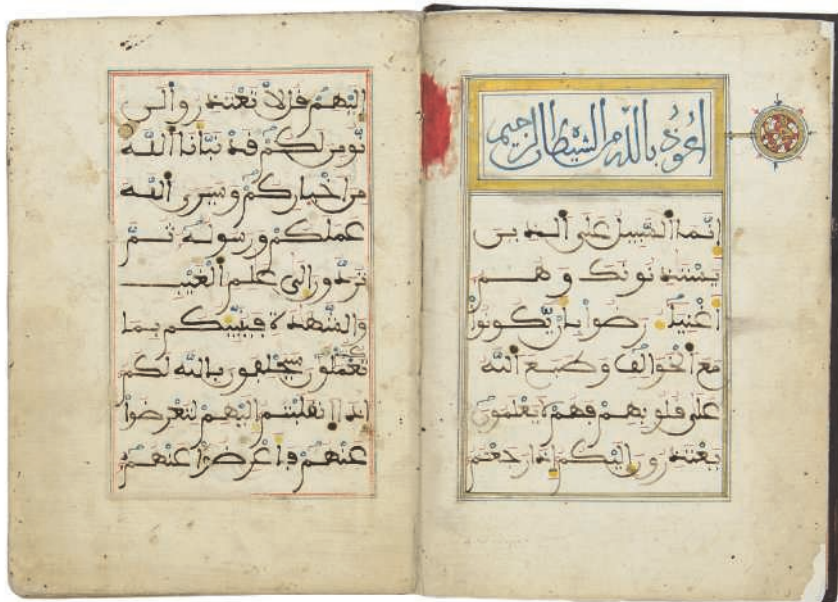 اعوذ بالله من الشيطان الرجيم
إنما السبيل على الذين
يستئذنونك وهم
أغنياء رضوا بأن يكونوا
مع الخوالف وطبع الله
على قلوبهم فهم لا يعلمون
يعتذرون إليكم إذا رجعتم
إليهم قل لا تعتذروا لن
نومن لكم قد نبأنا الله
من أخباركم وسيرى الله
عملكم ورسوله ثم
تردون إلى علم الغيب
والشهدة فينبئكم بما
كنتم تعملون سيحلفون بالله لكم
إذا انقلبتم إليهم لتعرضوا
عنهم فأعرضوا عنهم